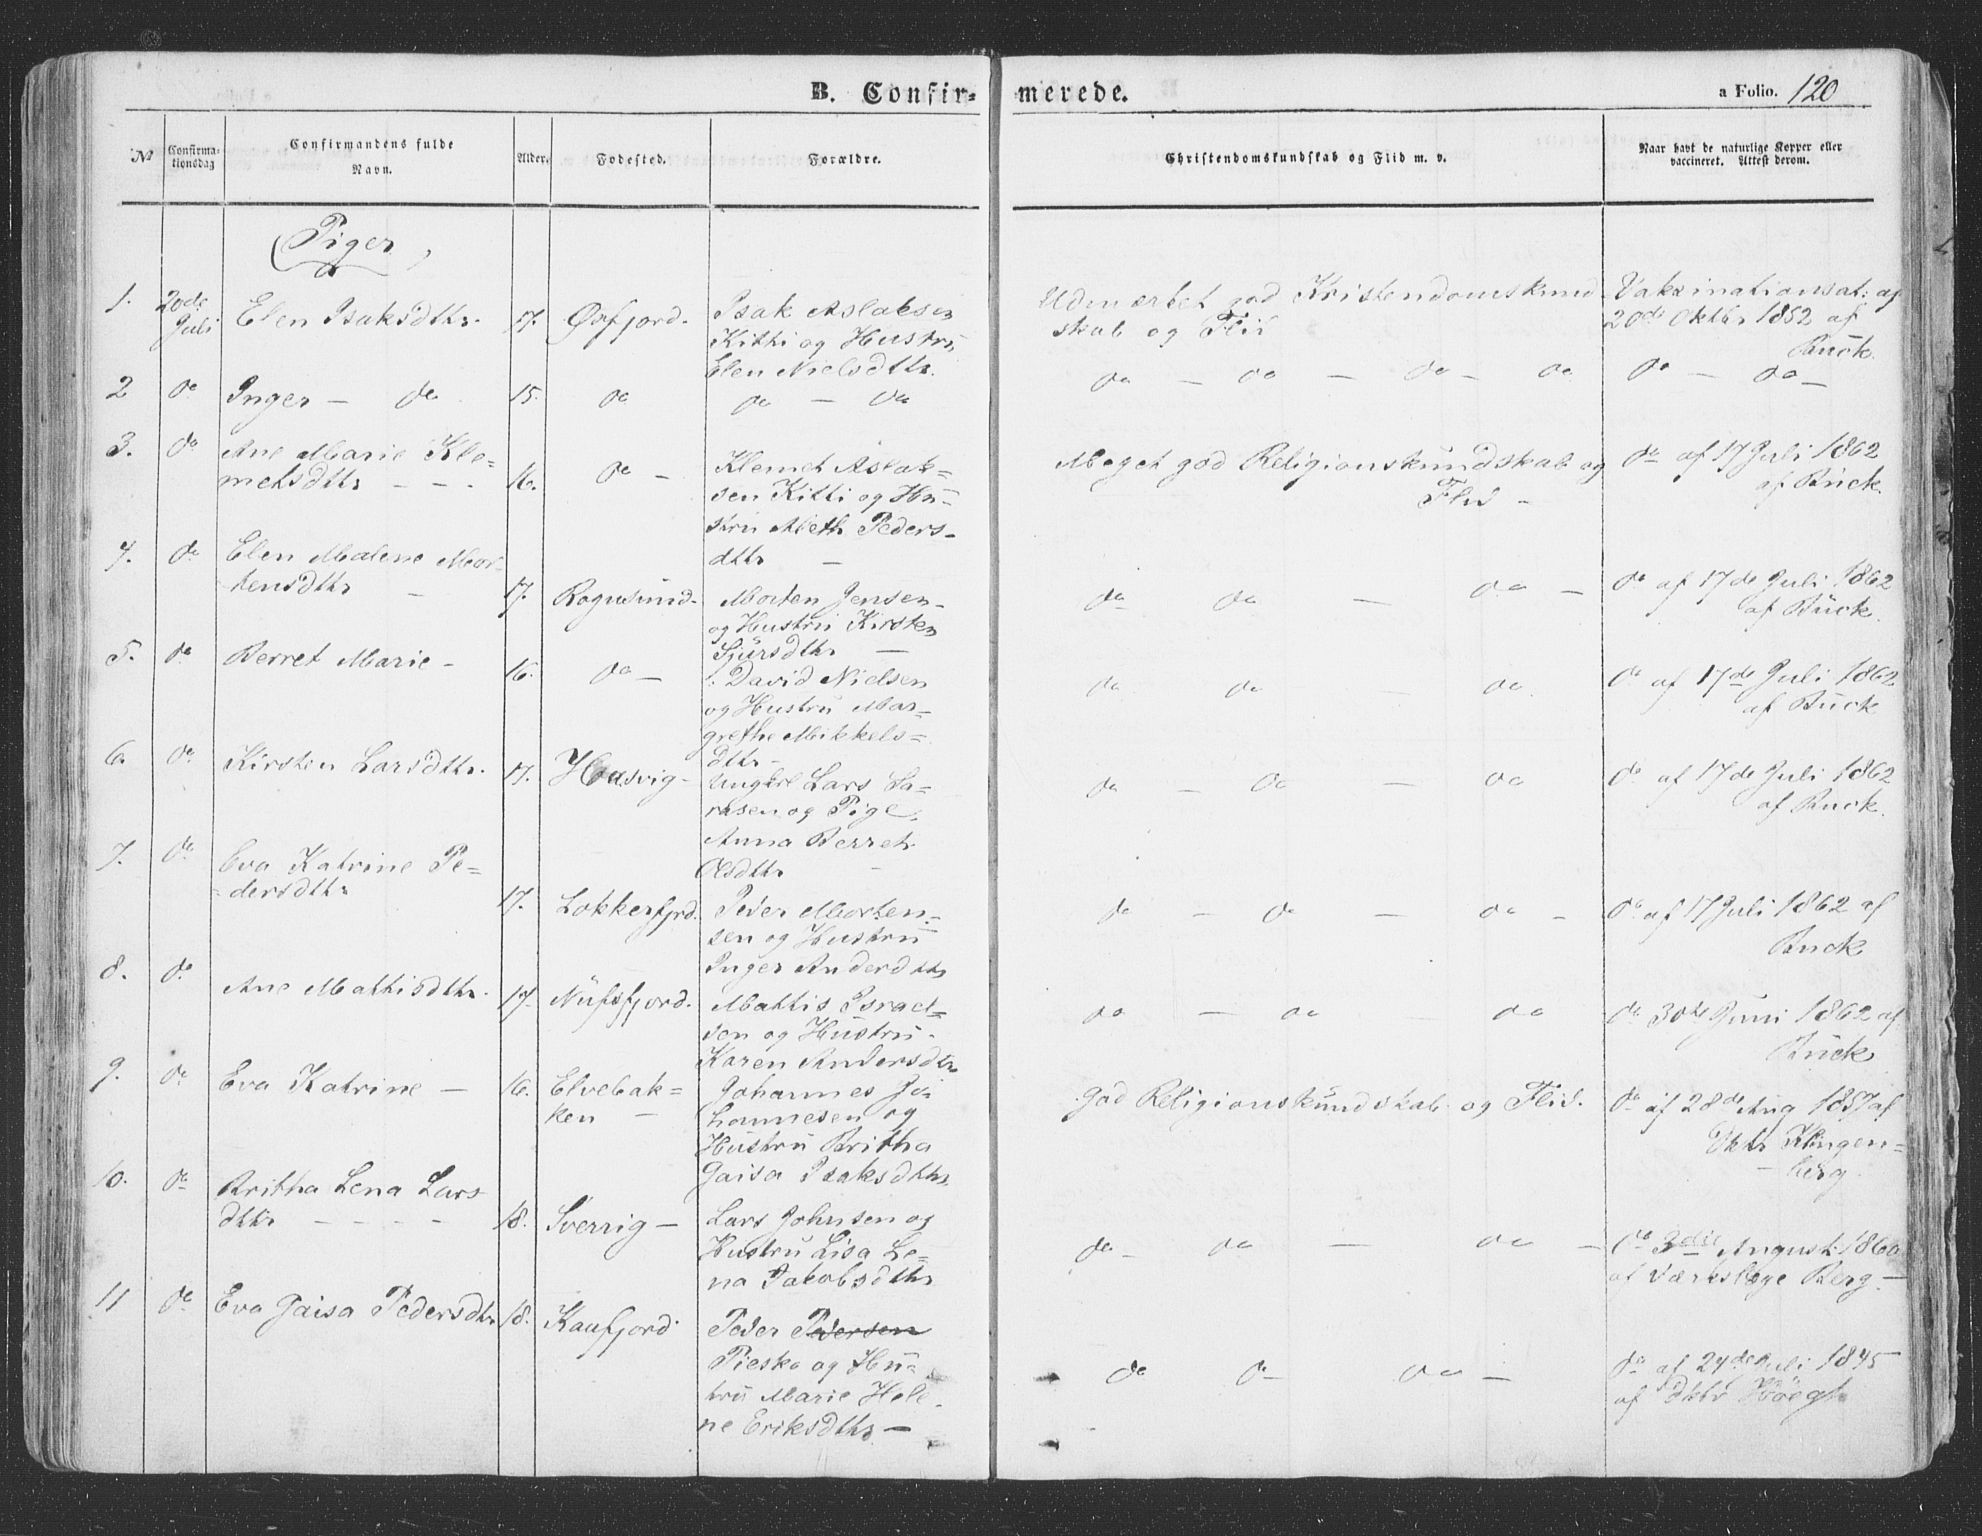 B. Confir-
merede.
a Folio. 120
№
Confirma-
tionsdag
Confirmandens fulde
Navn.
Alder.
Fødested.
Forældre.
Christendomskundskab og Flid m. v.
Naar havt de naturlige Kopper eller
vaccineret. Attest derom.
Piger
1. 20de Juli Elen Isaksdthr. 17. Øxfjord. Isak Aslaksen
Kitti og Hustru
Elen Nielsdthr.
Udmærket god Kristendomskund
skab og Flid
Vaksinationsat: af
20de Oktbr 1852 af
Buck.
2 do Inger — do 15. do do — do
do — do — do — do do — do —
3. do Ane Marie Kle=
metsdthr — — 16. do — Klemet Aslak=
sen Kitti og Hu=
stru Mbeth Peders=
dthr —
Meget god Religionskundskab og
Flid —
do af 17 Juli 1862
af Buck.
4. do Elen Malene Mor=
tensdthr — 17. Rognsund. Morten Jensen
og Hustru Kirsten
Sjursdthr —
do do — do — do af 17de Juli 1862
af Buck.
5. do Berret Marie — 16. do — David Nielsen
og Hustru Mar=
grethe Mikkels=
dthr —
do do — do do af 17de Juli 1862
af Buck
6. do Kirsten Larsdthr. 17. Hasvig — Ungkrl Lars La=
rssen og Pige
Anna Berret
Olsdthr —
do — do — do do af 17de Juli 1862
af Buck.
7. do Eva Katrine Pe=
dersdthr 17. Lokkerfjrd. Peder Morten=
sen og Hustru
Inger Andersdthr
do — do — do — do af 17 Juli 1862 af
Buck
8. do Ane Mathisdthr. 17. Nufsfjord. Mattis Israel=
sen og Hustru
Karen Andersdthr
do — do — do do 30te Juni 1862 af
Buck
9. do Eva Katrine — 16. Elvebak=
ken — Johannes Jo
hannesen og
Hustru Britha
Gaisa Isaksdthr.
God Religionskundskab og Flid. do af 28de Aug 1857 af
Dktr Klingen=
berg.
10. do Britha Lena Lars
dttr — — — — 18. Sverrig — Lars Johnsen og
Hustru Lisa Le=
na Jakobsdthr
do — do — do — do 3die August 1860
af Værkslæge Berg —
11 do Eva Gaisa Pedersdthr 18. Kaafjord Peder Pedersen
Pieska og Hu=
tru Marie Hele
ne Eriksdthr —
do do — do — do af 24de Juli 1845
af Dktr Höegh